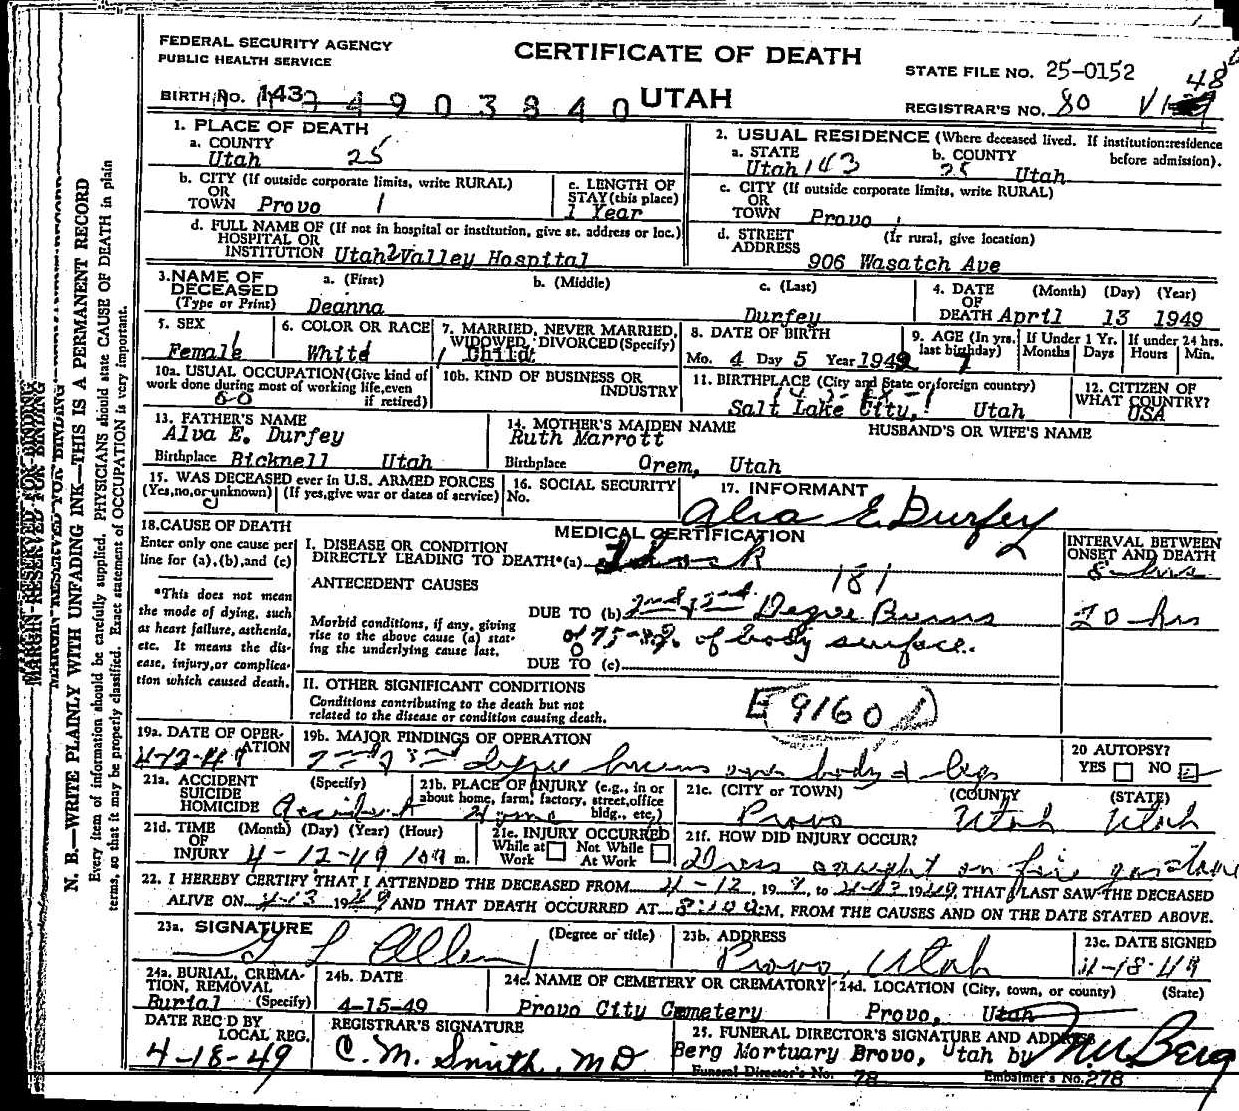 FEDERAL SECURITY AGENCY
PUBLIC HEALTH SERVICE
CERTIFICATE OF DEATH
STATE FILE NO. 25-0152
48
BIRTH NO. 143
4903840
UTAH
REGISTRAR'S NO. 80
1. PLACE OF DEATH
a. COUNTY
Utah 25
2. USUAL RESIDENCE (Where deceased lived. If institution:residence before admission).
a. STATE b. COUNTY
Utah 143 25 Utah
b. CITY (If outside corporate limits, write RURAL)
OR
TOWN Provo 1
c. LENGTH OF
STAY (this place)
1 Year
c. CITY (If outside corporate limits, write RURAL)
OR
TOWN Provo
d. FULL NAME OF (If not in hospital or institution, give st. address or loc.)
HOSPITAL OR
INSTITUTION Utah 2 Valley Hospital
d. STREET (If rural, give location)
ADDRESS
906 Wasatch Ave
3. NAME OF
DECEASED
(Type or Print)
a. (First) b. (Middle) c. (Last)
Deanna Durfey
4. DATE (Month) (Day) (Year)
OF
DEATH April 13 1949
5. SEX
Female
6. COLOR OR RACE
White
7. MARRIED, NEVER MARRIED,
WIDOWED, DIVORCED (Specify)
Child
8. DATE OF BIRTH
Mo. 4 Day 5 Year 1942
9. AGE (In yrs.
last birthday)
7
If Under 1 Yr.
Months Days
If under 24 hrs.
Hours Min.
10a. USUAL OCCUPATION (Give kind of
work done during most of working life, even
if retired)
10b. KIND OF BUSINESS OR
INDUSTRY
11. BIRTHPLACE (City and State or foreign country)
Salt Lake City, Utah
12. CITIZEN OF
WHAT COUNTRY?
USA
13. FATHER'S NAME
Alva E. Durfey
Birthplace Bicknell Utah
14. MOTHER'S MAIDEN NAME
Ruth Marrott
Birthplace Orem, Utah
HUSBAND'S OR WIFE'S NAME
15. WAS DECEASED ever in U.S. ARMED FORCES
(Yes,no,or unknown) (If yes,give war or dates of service)
16. SOCIAL SECURITY
No.
17. INFORMANT
Alva E. Durfey
18. CAUSE OF DEATH
Enter only one cause per
line for (a),(b),and (c)
*This does not mean
the mode of dying, such
as heart failure, asthenia,
etc. It means the dis-
ease, injury,or complica-
tion which caused death.
MEDICAL CERTIFICATION
I. DISEASE OR CONDITION
DIRECTLY LEADING TO DEATH*(a) Shock
INTERVAL BETWEEN
ONSET AND DEATH
8 hrs
181
ANTECEDENT CAUSES
Morbid conditions, if any, giving
rise to the above cause (a) stat-
ing the underlying cause last.
DUE TO (b) 2nd & 3rd Degree Burns
20 hrs
of 75-% of body surface.
DUE TO (c)
II. OTHER SIGNIFICANT CONDITIONS
Conditions contributing to the death but not
related to the disease or condition causing death.
E 9160
19a. DATE OF OPER-
ATION
4-12-49
19b. MAJOR FINDINGS OF OPERATION
2nd & 3rd degree burns over body & legs
20 AUTOPSY?
YES NO
21a. ACCIDENT (Specify)
SUICIDE
HOMICIDE Accident
21b. PLACE OF INJURY (e.g., in or
about home, farm, factory, street,office
bldg., etc.)
Home
21c. (CITY OR TOWN) (COUNTY (STATE)
Provo Utah Utah
21d. TIME (Month) (Day) (Year) (Hour)
OF
INJURY 4-12-49 m.
21e. INJURY OCCURRED
While at Work Not While At Work
21f. HOW DID INJURY OCCUR?
Dress caught on fire gas stove
22. I HEREBY CERTIFY THAT I ATTENDED THE DECEASED FROM 4-12, 19 to 4-13 1949, THAT I LAST SAW THE DECEASED
ALIVE ON 4-13 1949 AND THAT DEATH OCCURRED AT 8:10 M, FROM THE CAUSES AND ON THE DATE STATED ABOVE.
23a. SIGNATURE (Degree or title)
G L Allen
23b. ADDRESS
Provo, Utah
23c. DATE SIGNED
4-18-49
24a. BURIAL, CREMA-
TION, REMOVAL
Burial (Specify)
24b. DATE
4-15-49
24c. NAME OF CEMETERY OR CREMATORY
Provo City Cemetery
24d. LOCATION (City, town, or county) (State)
Provo, Utah
DATE REC'D BY
LOCAL REG.
4-18-49
REGISTRAR'S SIGNATURE
C. M. Smith, MD
25. FUNERAL DIRECTOR'S SIGNATURE AND ADDRESS
Berg Mortuary Brovo, Utah by Berg
Funeral Director's No. 78 Embalmer's No. 278
MARGIN RESERVED FOR BINDING
N. B.—WRITE PLAINLY WITH UNFADING INK—THIS IS A PERMANENT RECORD
Every item of information should be carefully supplied. PHYSICIANS should state CAUSE OF DEATH in plain
terms, so that it may be properly classified. Exact statement of OCCUPATION is very important.